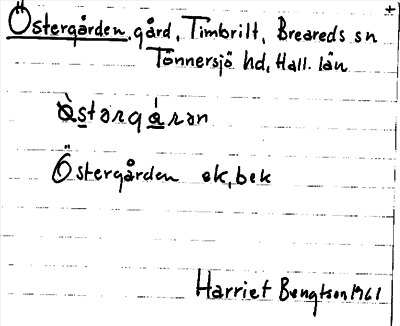 Östergården, gård, Timbrilt, Breareds sn
Tönnersjö hd, Hall. län
Östergården ek, bek
Harriet Bengtson 1961